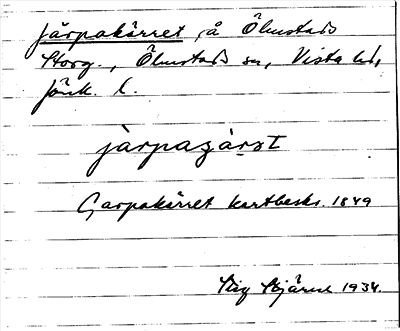 Järpakärret, å Ölmstads
Storg., Ölmstads sn, Vista hd,
Jönk. l.
jàrpaʒàrət
Garpakärret kartbeskr. 1849
Stig Bjärne 1934.